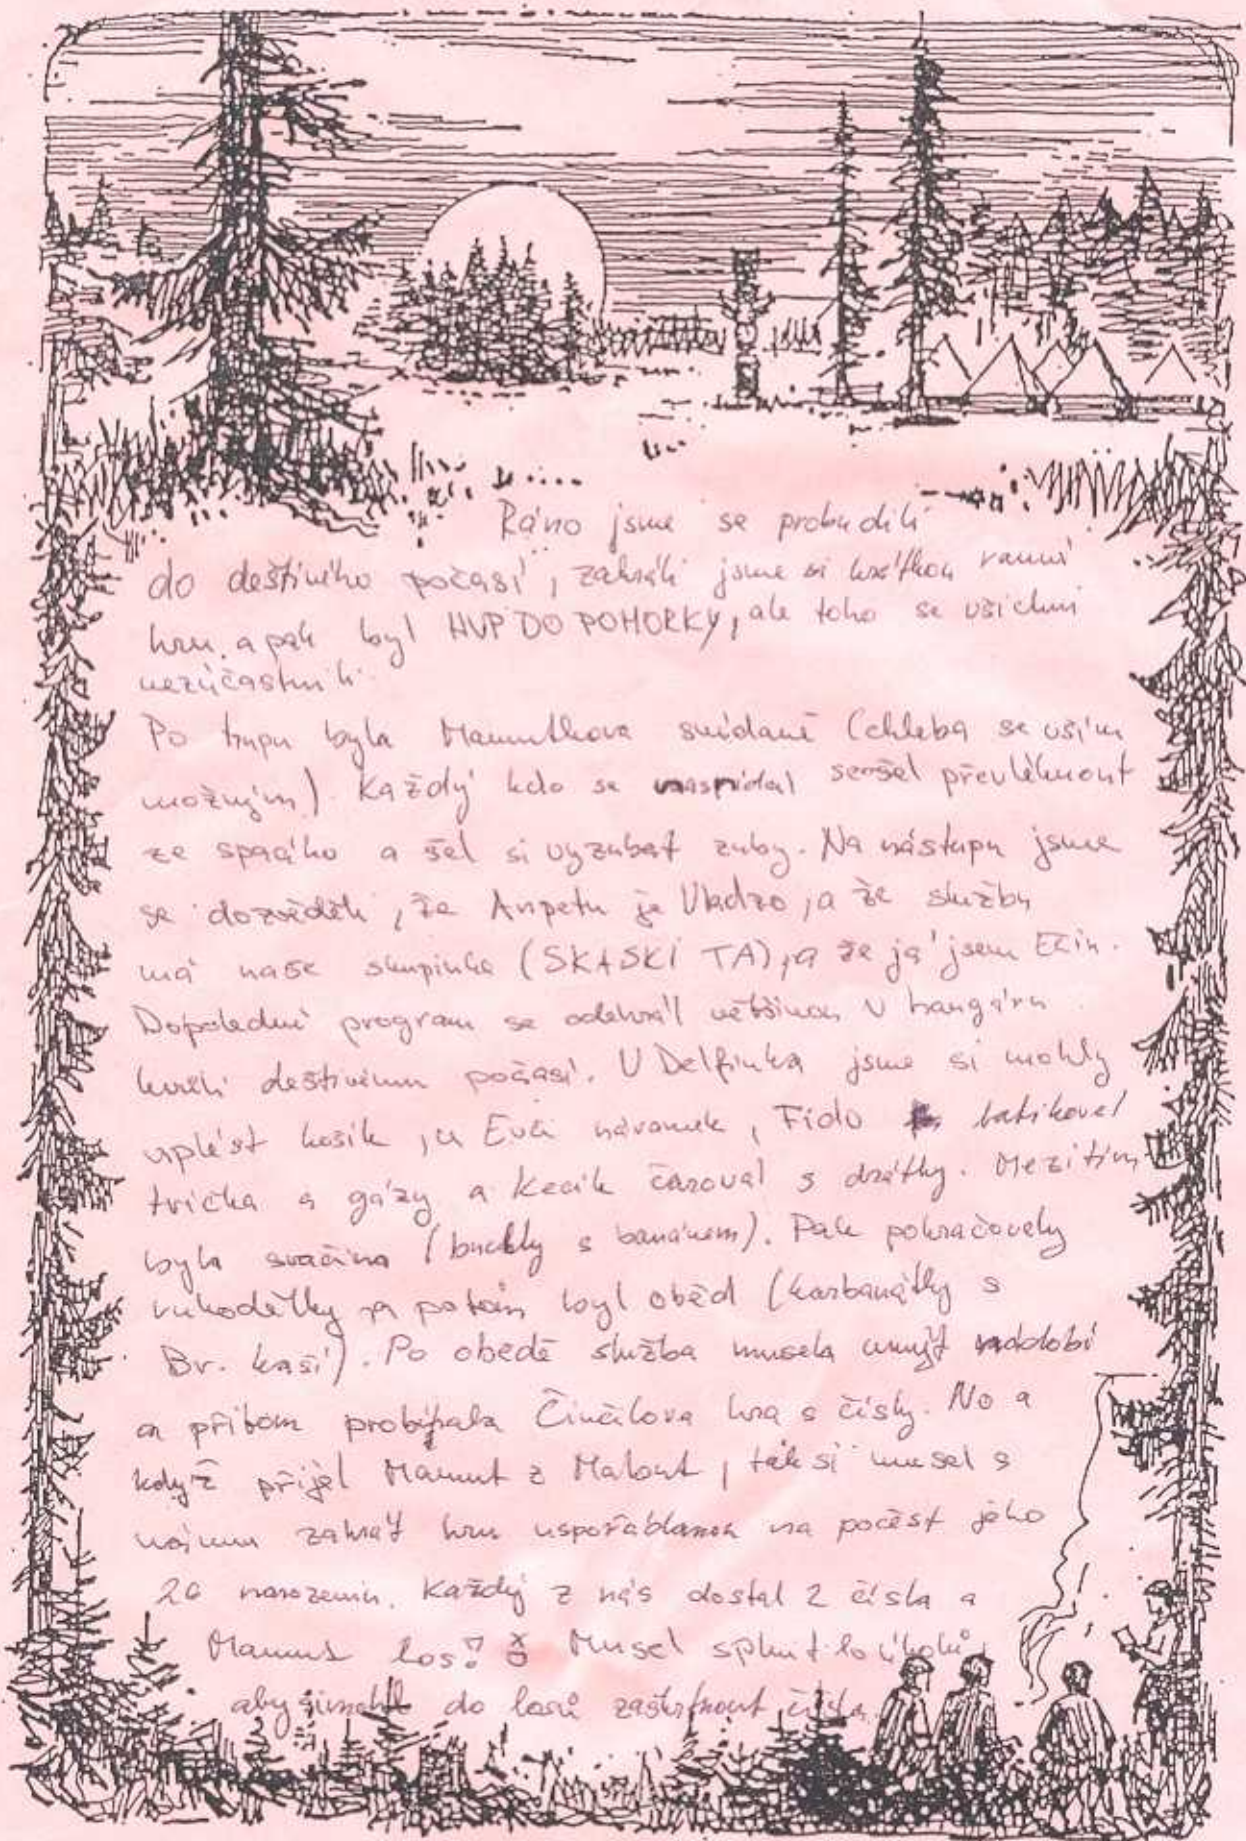 Ráno jsme se probudili
do deštivého počasí, zahráli jsme si krátkou ranní
hru a pak byl HUP DO POHORKY, ale toho se všichni
nezúčastnili.
Po hupu byla Mamutkova snídaně (chleba se vším
možným). Každý kdo se nasnídal se šel převléknout
ze spacího a šel si vyzubat zuby. Na nástupu jsme
se dozvěděli, že Anpetu je Vladzo, a že službu
má naše skupinka (SKASKI TA), a že já jsem Ečin.
Dopolední program se odehrál většinou v hangáru
kvůli deštivému počasí. U Delfínka jsme si mohly
uplést košík, u Evči náramek, Fido batikoval
trička a gázy a Kecik čaroval s drátky. Mezitím
byla svačina (buchty s banánem). Pak pokračovaly
rukodělky a potom byl oběd (karbanátky s
Br. kaší). Po obědě služba musela umýt nádobí
a přitom probíhala Činčilova hra s čísly. No a
když přijel Mamut z Malont, tak si musel s
námi zahrát hru uspořádanou na počest jeho
20 narozenin. Každý z nás dostal 2 čísla a
Mamut los. Musel splnit 10 úkolů,
aby si mohl do losů zaškrtnout čísla.